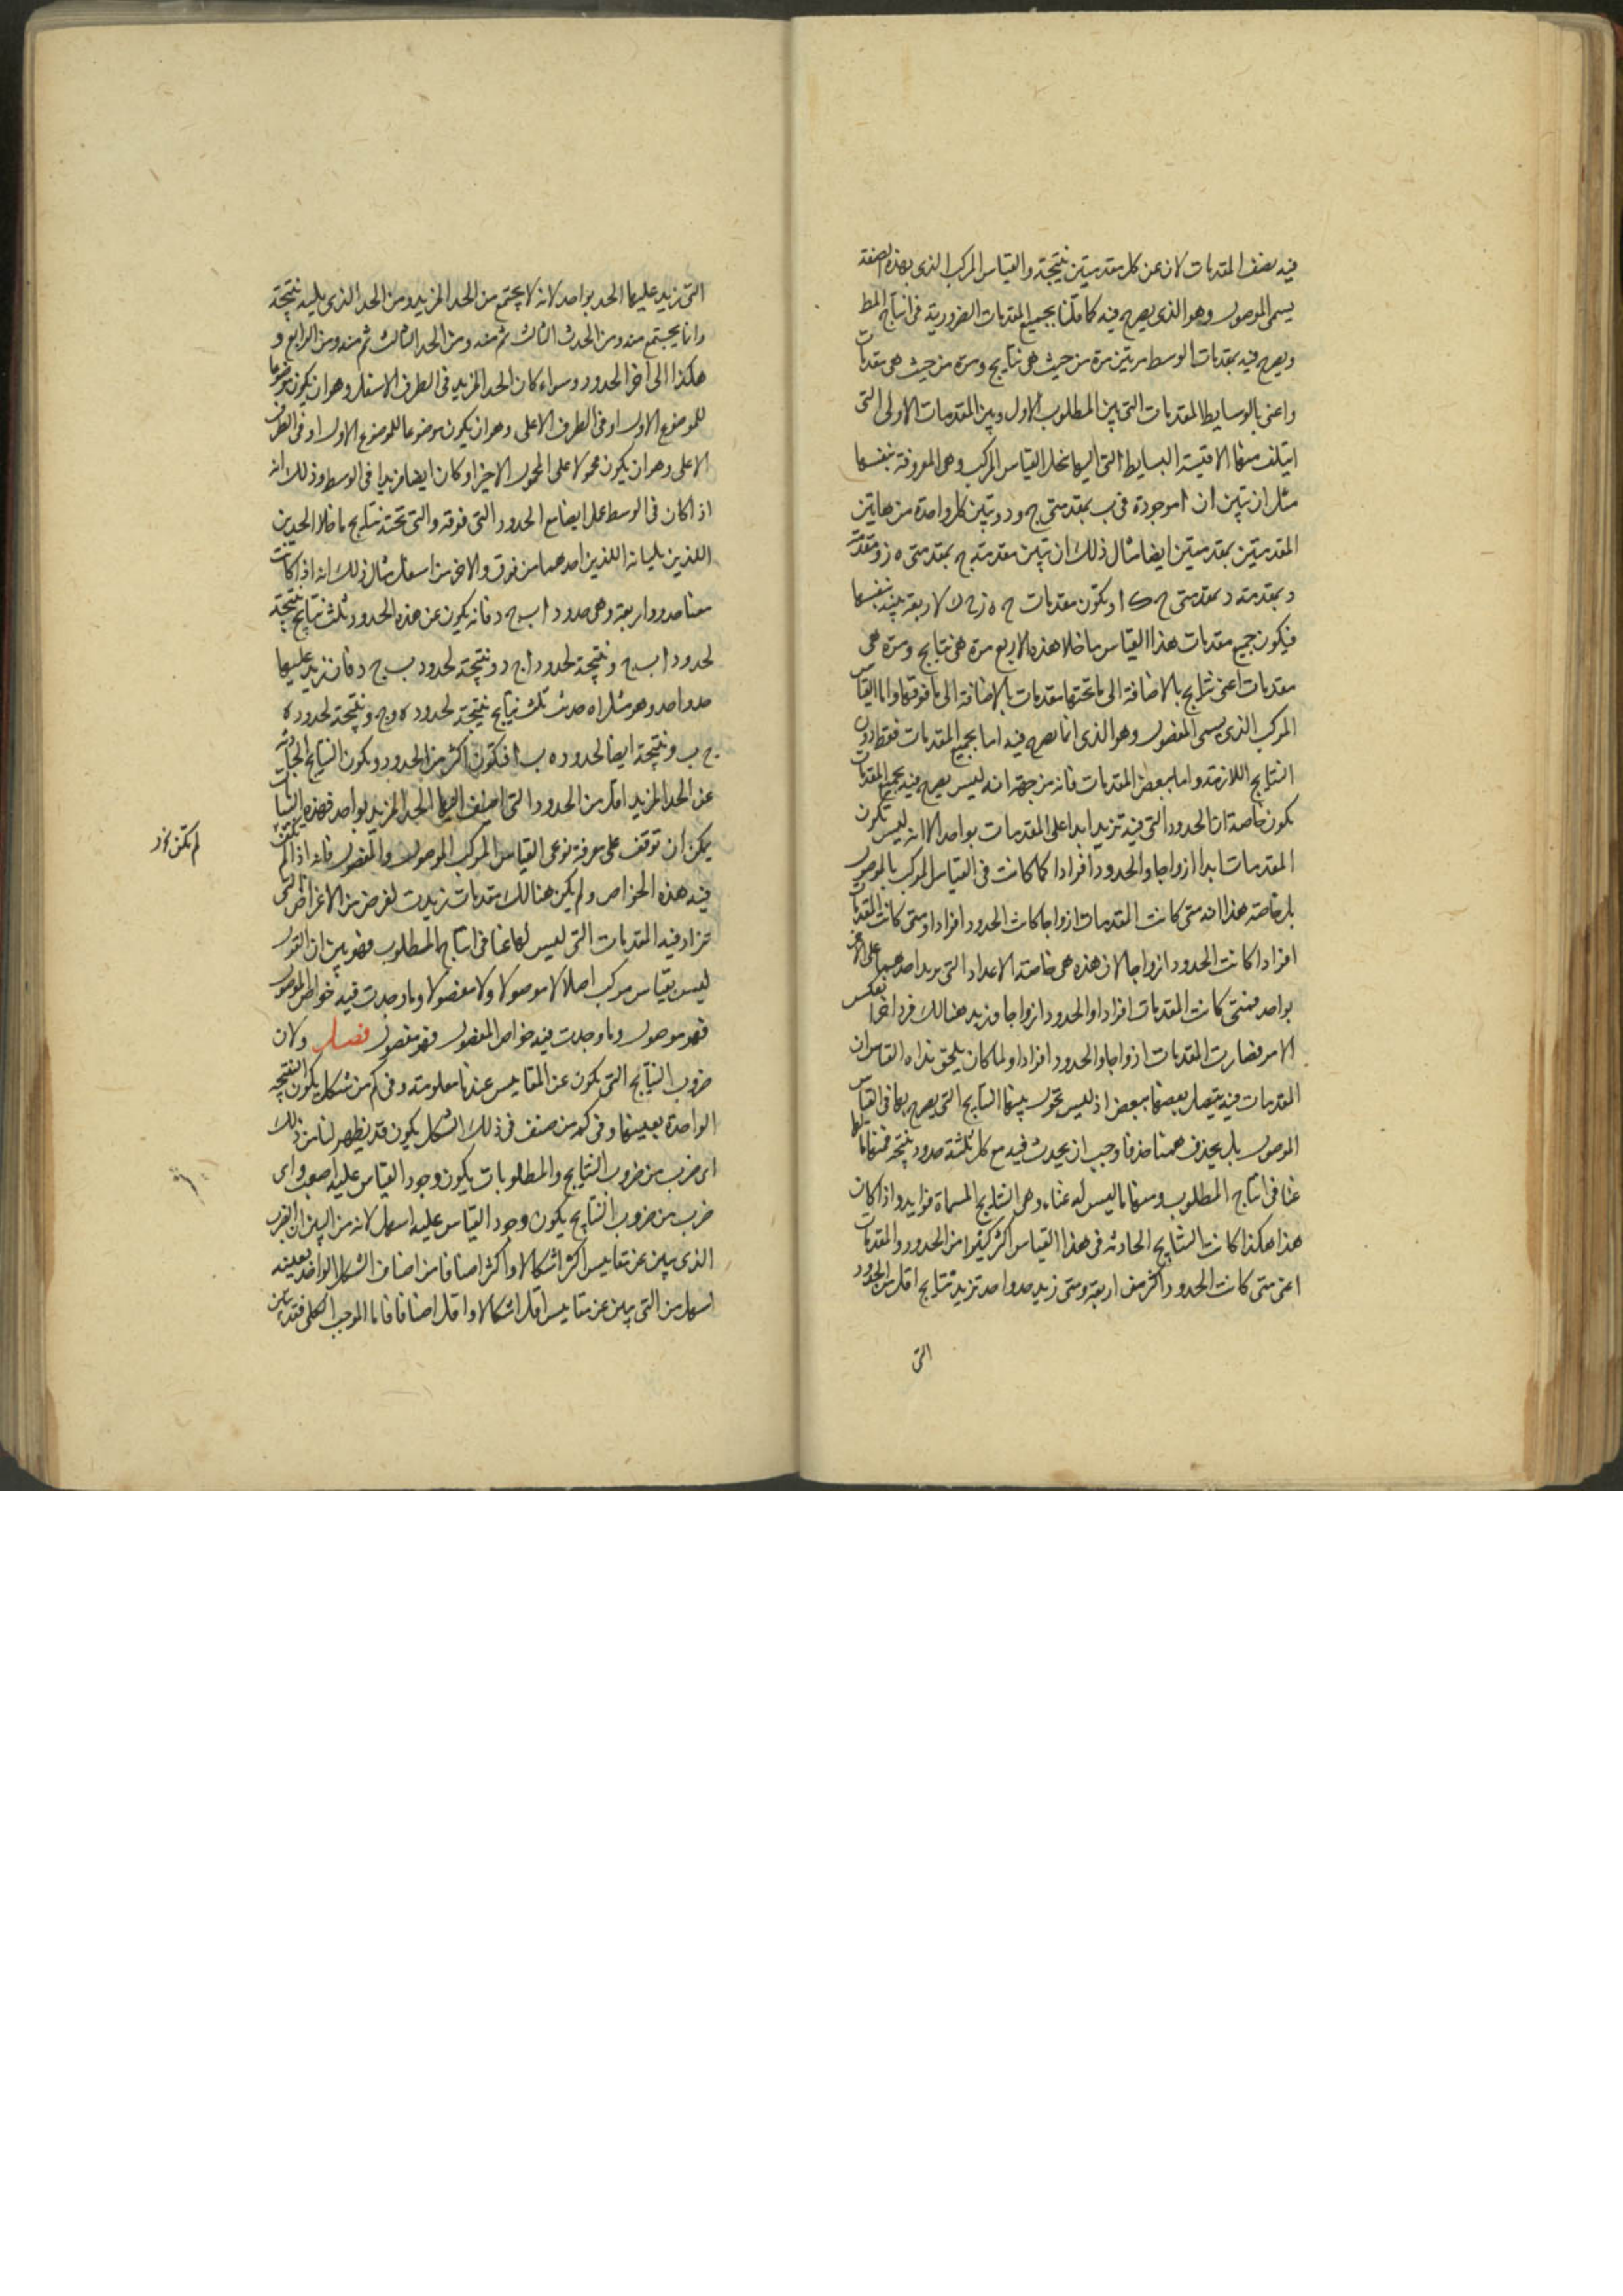 فيه نصف المقدمات لان عن كل مقدمتين نتيجة والقياس المركب الذى بهذه الصفة
يسمى الموصول وهو الذى يصرح فيه كما قلنا بجميع المقدمات الضرورية فى انتاج المط
ويصرح فيه بمقدمات الوسط مرتين مرة من حيث هى نتايج ومرة من حيث هى مقدمات
واعنى بالوسايط المقدمات التى بين المطلوب الاول وبين المقدمات الاولى التى
ايتلفت منها الاقيسة البسايط التى اليها نحل القياس المركب وهى المعروفة بنفسها
مثل ان نبين ان ا موجودة فى ب بمقدمتى ج و د ونبين كل واحدة من هاتين
المقدمتين بمقدمتين ايضا مثال ذلك ان نبين مقدمة ج بمقدمتى ه ز ومقدمة
د بمقدمتى ح ك وتكون مقدمات ه ز ح ك الاربعة بينة بنفسها
فيكون جميع مقدمات هذا القياس ما خلا هذه الاربع مرة هى نتايج ومرة هى
مقدمات اعنى نتايج بالاضافة الى ما تحتها مقدمات بالاضافة الى ما فوقها واما القياس
المركب الذى يسمى المفصول وهو الذى انما يصرح فيه اما بجميع المقدمات فقط دون
النتايج اللازمة واما ببعض المقدمات فانه من جهة انه ليس يصرح فيه بجميع المقدمات
تكون خاصة ان الحدود التى فيه تزيد ابدا على المقدمات بواحد الا انه ليس تكون
المقدمات ابدا ازواجا والحدود افرادا كما كانت فى القياس المركب الموصول
بل خاصة هذا انه متى كانت المقدمات ازواجا كانت الحدود افرادا ومتى كانت المقدمات
افرادا كانت الحدود ازواجا لان هذه هى خاصة الاعداد التى يزيد احدهما على الاخر
بواحد فمتى كانت المقدمات افرادا والحدود ازواجا وزيد هنالك فرد اخر انعكس
الامر فصارت المقدمات ازواجا والحدود افرادا ولما كان يلحق هذا القياس ان
المقدمات فيه يتصل بعضها ببعض اذ ليس تحول بينها النتايج التى يصرح بها فى القياس
الموصول بل يحذف ههنا حذفا وجب ان يحدث فيه مع كل ثلثة حدود نتيجة فمنها ما لها
غنا فى انتاج المطلوب ومنها ما ليس له غناء وهى النتايج المسماة فوايد واذا كان
هذا هكذا كانت النتايج الحادثة فى هذا القياس اكثر كثيرا من الحدود والمقدمات
اعنى متى كانت الحدود اكثر من اربعة ومتى زيد حد واحد تزيد نتايج اقل من الحدود
التى
التى زيد عليها الحد بواحد لانه لا يجتمع من الحد المزيد ومن الحد الذى يليه نتيجة
وانما يجتمع منه ومن الحد الثالث ثم منه ومن الرابع و
هكذا الى اخر الحدود وسواء كان الحد المزيد فى الطرف الاسفل وهو ان يكون موضوعا
للموضوع الاول او فى الطرف الاعلى وهو ان يكون موضوعا للموضوع الاول او فى الطرف
الاعلى وهو ان يكون محمولا على المحمول الاخير او كان ايضا مزيدا فى الوسط وذلك انه
اذا كان فى الوسط عمل ايضا مع الحدود التى فوقه والتى تحته نتايج ما خلا الحدين
اللذين يليانه اللذين احدهما من فوق والاخر من اسفل مثال ذلك انه اذا كانت
معنا حدود اربعة وهى حدود ا ب ج د فانه يكون عن هذه الحدود ثلث نتايج نتيجة
لحدود ا ب ج ونتيجة لحدود ا ج د ونتيجة لحدود ب ج د فان زيد عليها
حد واحد وهو مثلا ه حدثت ثلث نتايج نتيجة لحدود ه د ج ونتيجة لحدود ه
ج ب ونتيجة ايضا لحدود ه ب ا فتكون اكثر من الحدود وتكون النتايج الحادثة
عن الحد المزيد اقل من الحدود التى اضيف اليها الحد المزيد بواحد فهذه الاشيا
يمكن ان توقف على معرفة نوعى القياس المركب الموصول والمفصول فانه اذا لم تكن
فيه هذه الخواص ولم يكن هنالك مقدمات زيدت لغرض من الاغراض التى
تزاد فيه المقدمات التى ليس لها غنا فى انتاج المطلوب فهو بين ان القول
ليس بقياس مركب اصلا لا موصولا ولا مفصولا وما وجدت فيه خواص الموصول
فهو موصول وما وجدت فيه خواص المفصول فهو مفصول فصل ولان
ضروب النتايج التى تكون عن المقاييس عندنا معلومة وفى كم من شكل يكون النتيجة
الواحدة بعينها وفى كم من صنف فى ذلك الشكل يكون قد يظهر لنا من ذلك
اى ضرب من ضروب النتايج والمطلوبات يكون وجود القياس عليه اصعب واى
ضرب من ضروب النتايج يكون وجود القياس عليه اسهل لانه من البين ان الضرب
الذى يبين عن مقاييس اكثر اشكالا واكثر اصنافا من اصناف الشكل الواحد بعينه
اسهل من التى يبين عن مقاييس اقل اشكالا واقل اصنافا فاما الموجب الكلى فقد تبين
لم تكن